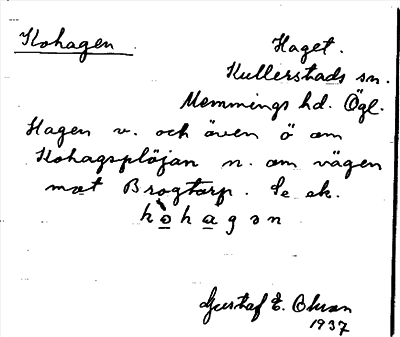 Kohagen.
Haget.
Kullerstads sn.
Memmings hd. Ögl.
Hagen v. och även ö om
Kohagsplöjan n. om vägen
mot Brogtorp. Se ek.
kòhagən
Gustaf E.
1937